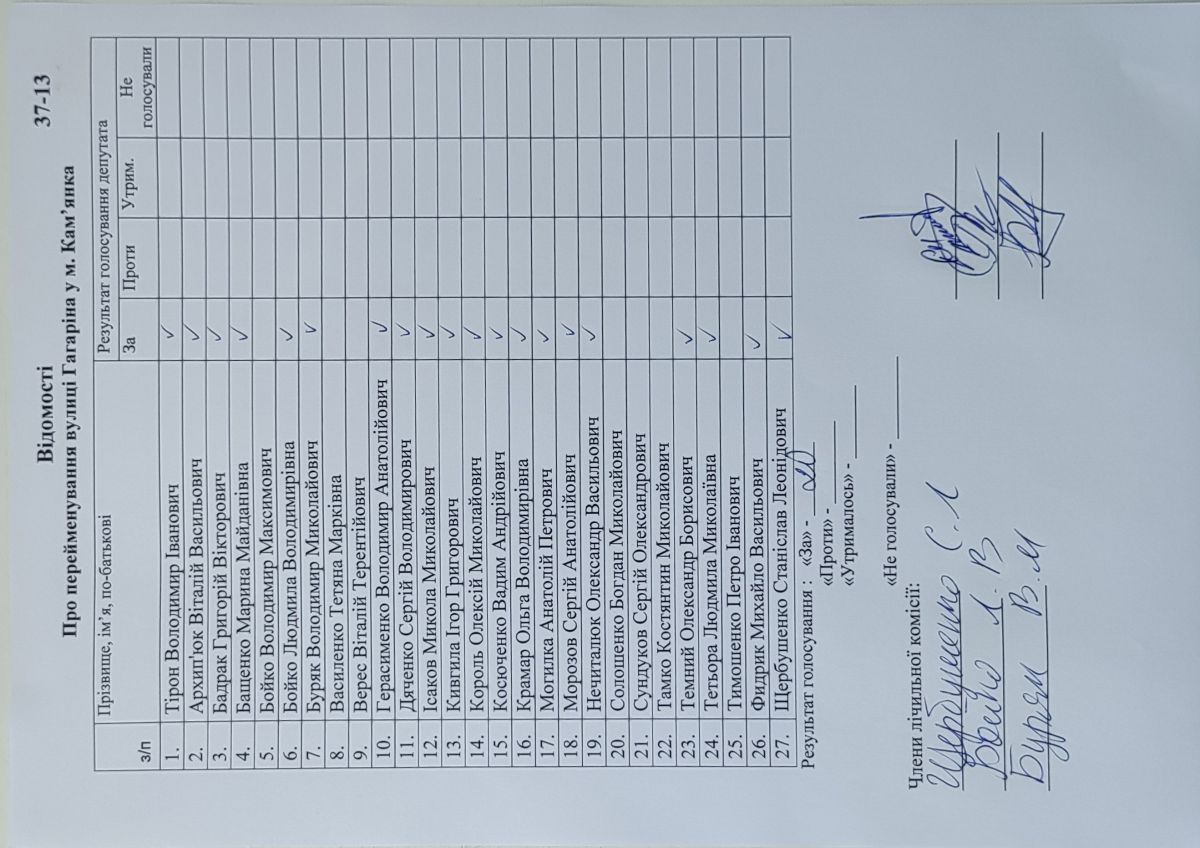 Відомості 37-13
Про перейменування вулиці Гагаріна у м. Кам’янка
з/п Прізвище, ім’я, по-батькові Результат голосування депутата
За Проти Утрим. Не голосували
1. Тірон Володимир Іванович ✓
2. Архип'юк Віталій Васильович ✓
3. Бадрак Григорій Вікторович ✓
4. Бащенко Марина Майданівна ✓
5. Бойко Володимир Максимович
6. Бойко Людмила Володимирівна ✓
7. Буряк Володимир Миколайович ✓
8. Василенко Тетяна Марківна
9. Верес Віталій Терентійович
10. Герасименко Володимир Анатолійович ✓
11. Дяченко Сергій Володимирович ✓
12. Ісаков Микола Миколайович ✓
13. Кивгила Ігор Григорович ✓
14. Король Олексій Миколайович ✓
15. Косюченко Вадим Андрійович ✓
16. Крамар Ольга Володимирівна ✓
17. Могилка Анатолій Петрович ✓
18. Морозов Сергій Анатолійович ✓
19. Нечиталюк Олександр Васильович ✓
20. Солошенко Богдан Миколайович
21. Сундуков Сергій Олександрович
22. Тамко Костянтин Миколайович
23. Темний Олександр Борисович ✓
24. Тетьора Людмила Миколаївна ✓
25. Тимошенко Петро Іванович
26. Фидрик Михайло Васильович ✓
27. Щербушенко Станіслав Леонідович ✓
Результат голосування : «За» - 20
«Проти» -
«Утрималось» -
«Не голосували» -
Члени лічильної комісії:
Щербушенко С. Л
Бойко Л. В
Буряк В. М